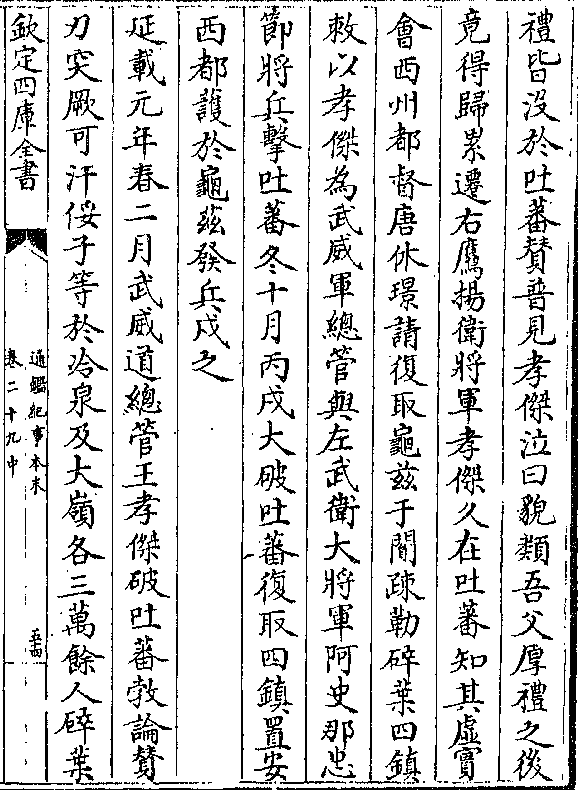 禮皆没於吐蕃賛普見孝傑泣曰貌類吾父厚禮之後
竟得歸累遷右鷹揚衛將軍孝傑久在吐蕃知其虛實
會西州都督唐休璟請復取龜兹于闐疎勒碎葉四鎮
敕以孝傑為武威軍總管與左武衛大將軍阿史那忠
節將兵擊吐蕃冬十月丙戌大破吐蕃復取四鎮置安
西都護於龜兹發兵戍之
延載元年春二月武威道總管王孝傑破吐蕃敦論賛
刃突厥可汗俀子等於冷泉及大嶺各三萬餘人碎葉
欽定四庫全書
通鑑紀事本末
卷二十九中
五十四